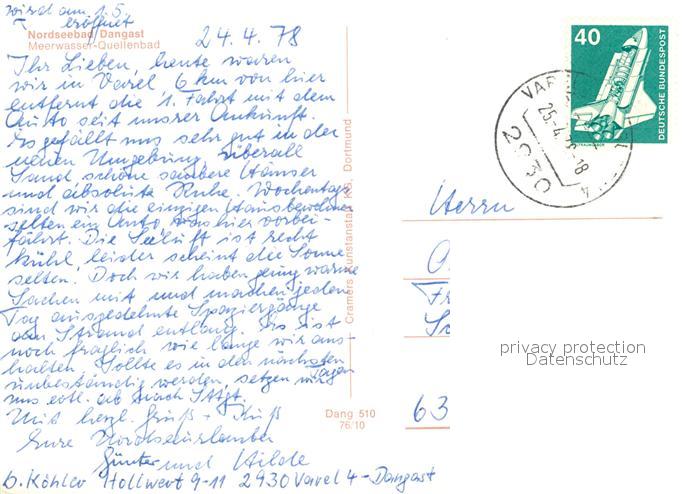 wird am 1.5.
eröffnet
Nordseebad Dangast
Meerwasser-Quellenbad
24.4.78
Ihr Lieben, heute waren
wir in Varel 6 km von hier
entfernt die 1. Fahrt mit dem
Auto seit unserer Ankunft.
Es gefällt uns sehr gut in der
neuen Umgebung, überall
Sand schöne saubere Häuser
und absolute Ruhe. Wochentags
sind wir die einzigen Hausbewohner
selten ein Auto was hier vorbei-
fährt. Die Seeluft ist recht
kühl, leider scheint die Sonne
selten. Doch wir haben genug warme
Sachen mit und machen jeden
Tag ausgedehnte Spaziergänge
am Strand entlang. Es ist
noch fraglich wie lange wir aus-
halten. Sollte es in den nächsten
Tagen
unbeständig werden, setzen wir
uns evtl. ab nach Stgt.
Mit herzl. Gruß + Kuß
Eure Nordseeurlauber
Günter und Hilde
b. Köhler Hollwert 9-11 2930 Varel 4 - Dangast
Dang 510
76/10
Cramers Kunstanstalt KG, Dortmund
40
DEUTSCHE BUNDESPOST
25.-4.78-18
2930
Herrn
Fr
63
privacy protection
Datenschutz